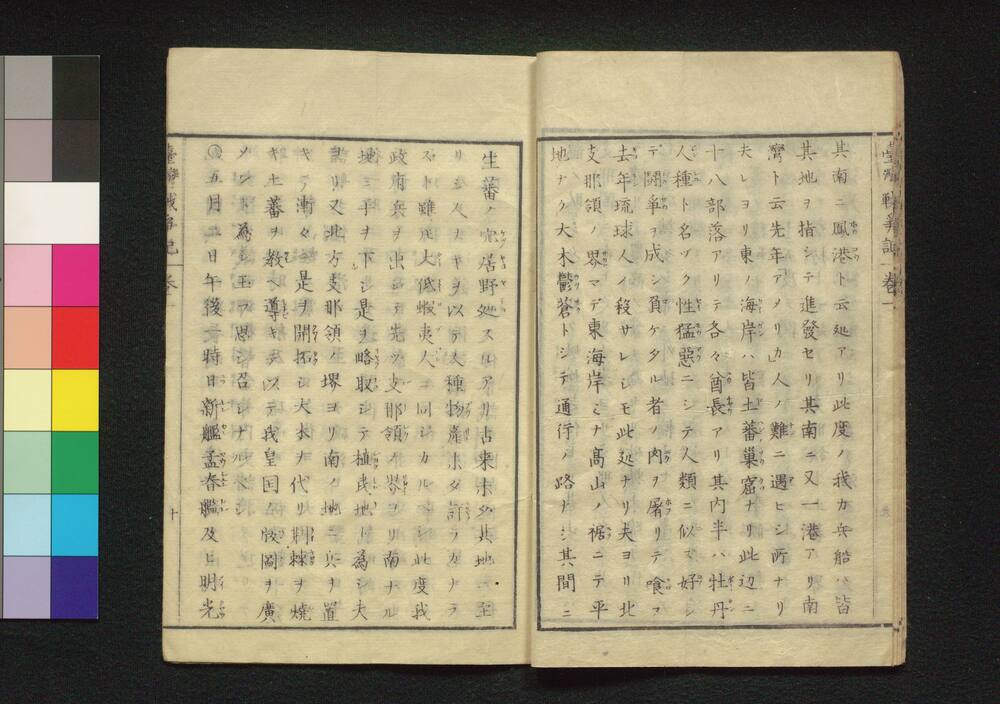 其南ニ鳳港ト云処アリ此度ノ我カ兵船ハ皆
其地ヲ指シテ進發セリ其南ニ又一港アリ南
灣ト云先年アメリカ人ノ難ニ遇ヒシ所ナリ
夫レヨリ東ノ海岸ハ皆土蕃巢窟ナリ此辺ニ
十八部落アリテ各々酋長アリ其内半ハ牡丹
人種ト名ヅク性猛惡ニシテ人類ニ似ズ好ンデ
闘爭ヲ成シ負ケタル者ノ肉ヲ屠リテ喰フ
去年琉球人ノ殺サレシモ此処ナリ夫ヨリ北
支那領ノ界マデ東海岸ミナ髙山ノ裾ニテ平
地ナク大木鬱蒼トシテ通行ノ路ナシ其間ニ
生蕃ノ穴居野処スルアリ古来未タ其地ニ至
リシ人ナキヲ以テ人種物産未タ詳ラカナラ
ズト雖𪜈大低蝦夷人ニ同シカルベシ此度我
政府兵ヲ出シテ先ツ支那領ノ界ヨリ南ナル
地ニ手ヲ下シ是ヲ略取シテ植民地ト為シ夫
ヨリ又北方支那領ノ堺ヨリ南ノ地ニ兵ヲ置
キテ漸々ニ是ヲ開拓シ大木ヲ伐リ荆棘ヲ燒
キ土蕃ヲ教ヘ導キ以テ我皇国ノ版圖ヲ廣
メント為シ玉フ思シ召シナルベシ
五月二日午後一時日新艦孟春艦及ヒ明光
臺灣戰爭記 卷一
十